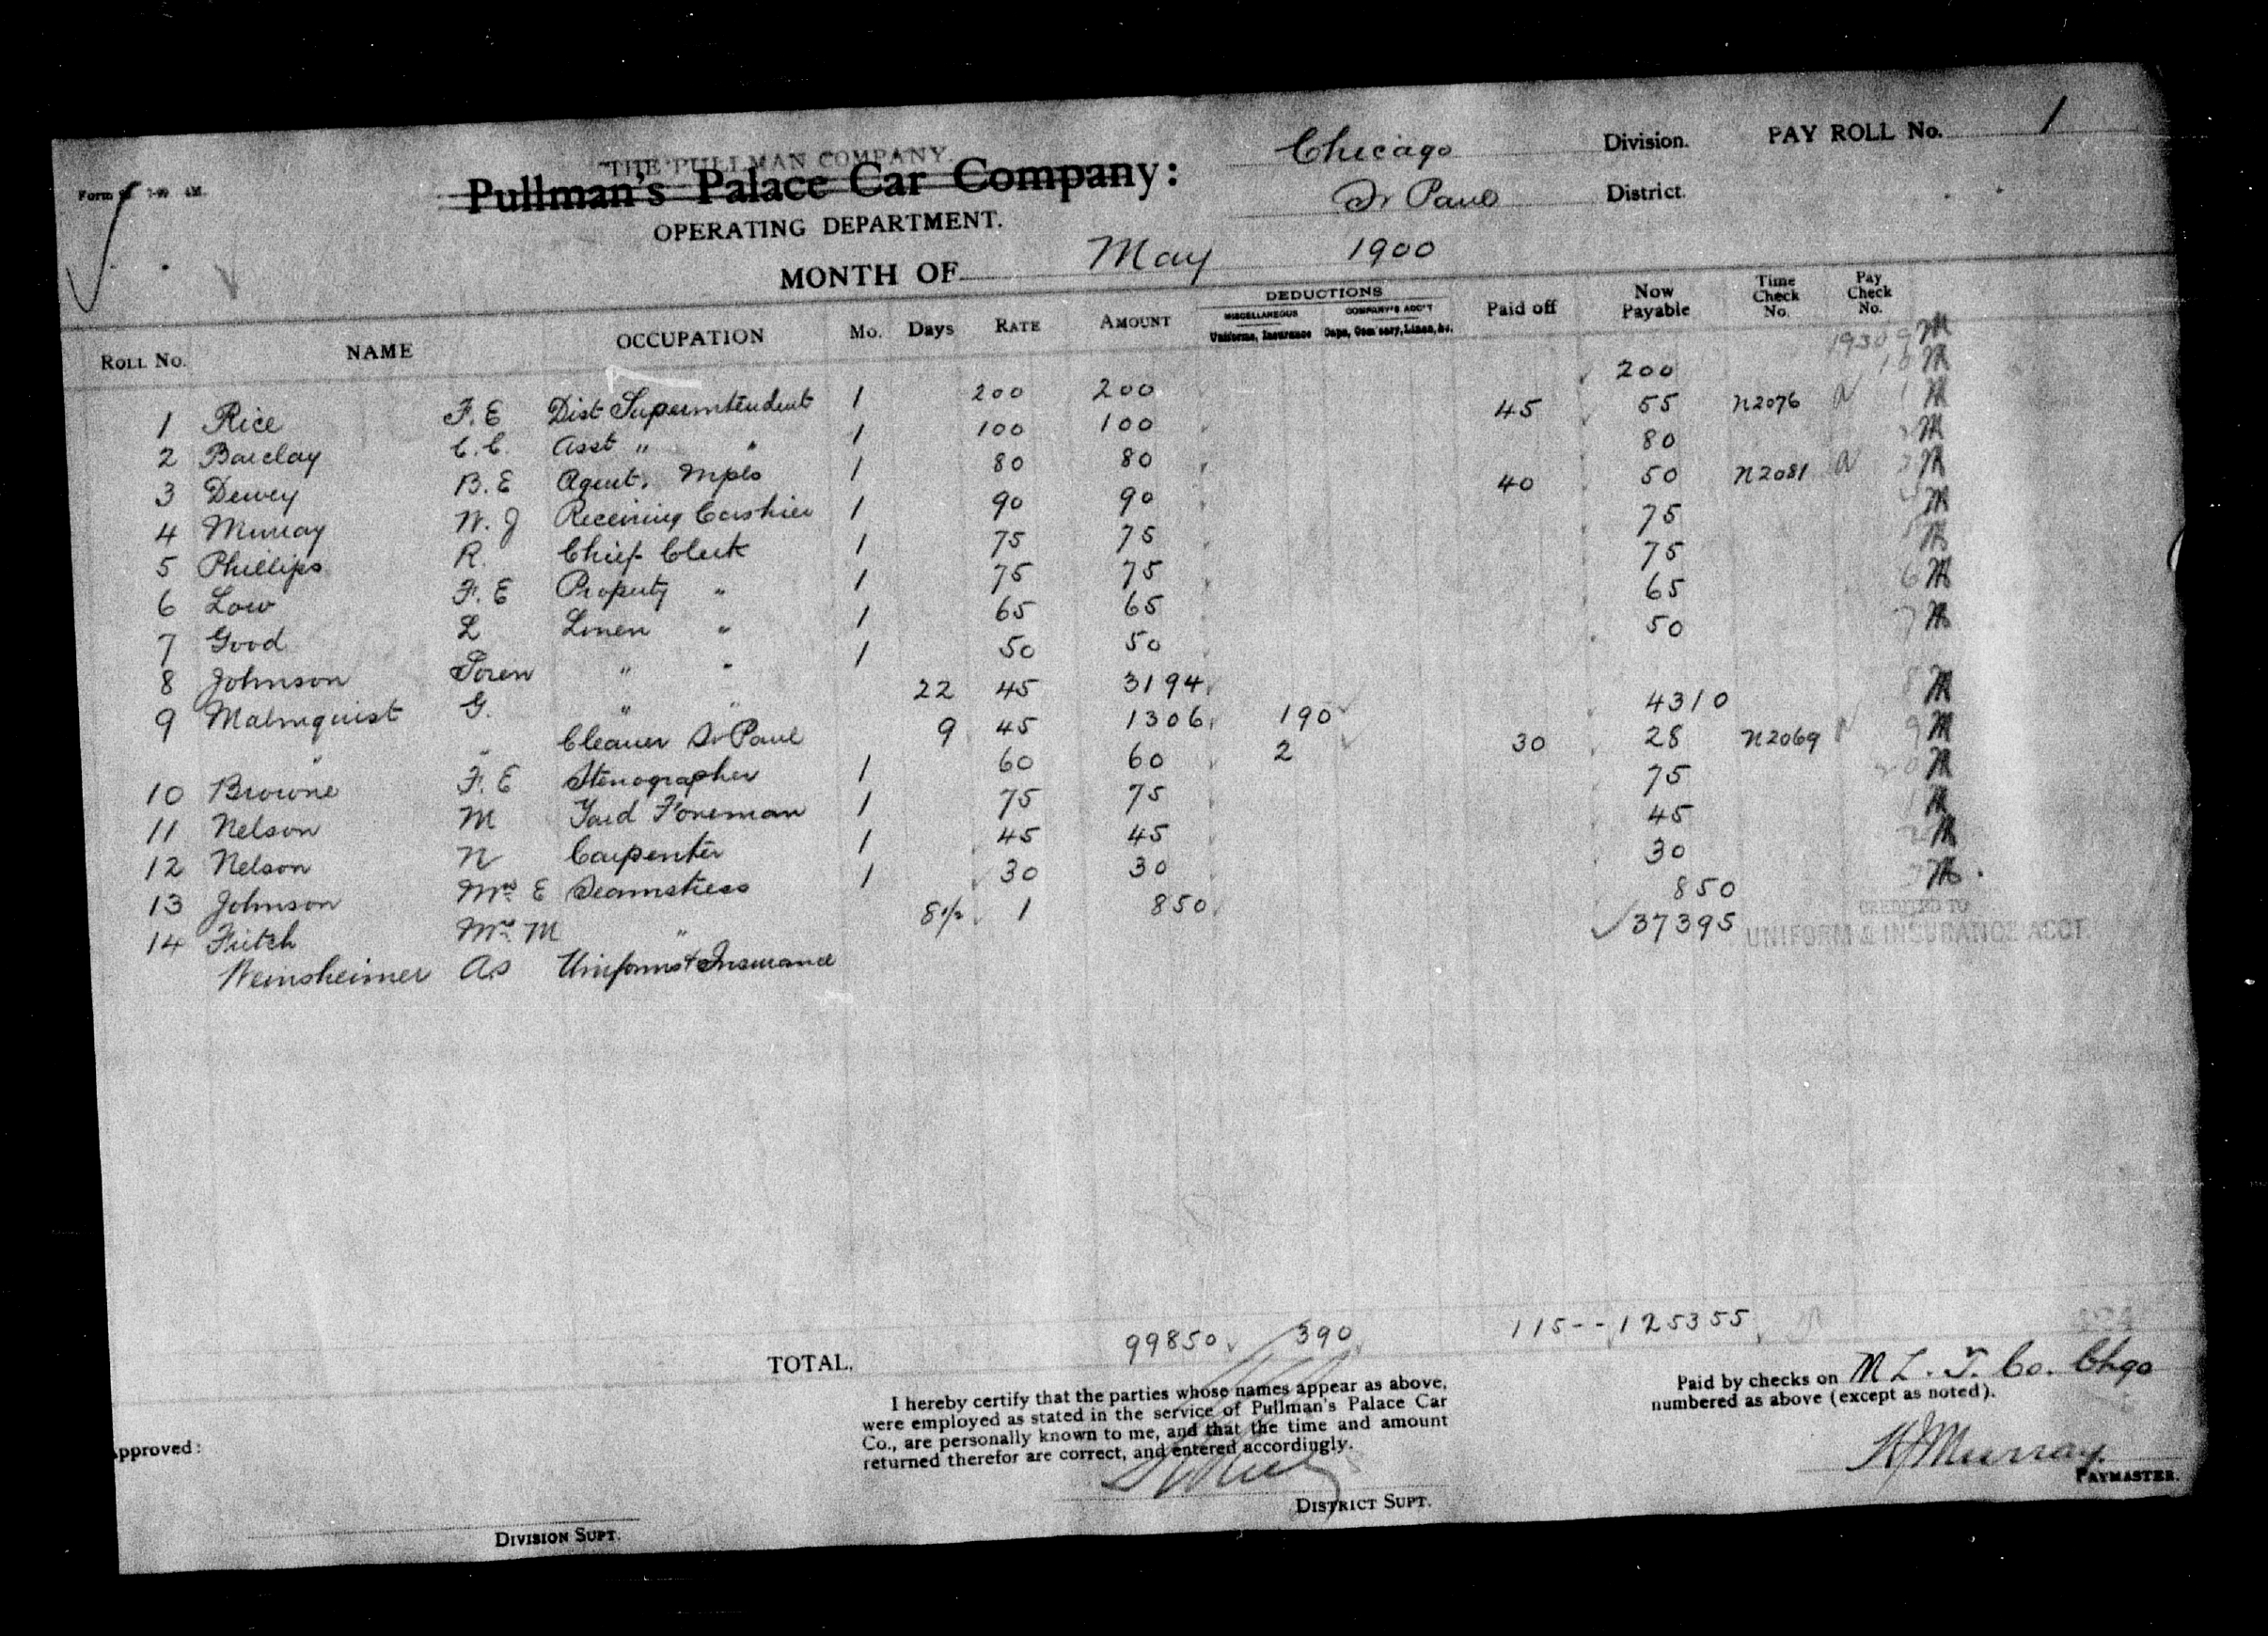 THE PULLMAN COMPANY.
Pullman's Palace Car Company:
OPERATING DEPARTMENT.
Chicago Division. PAY ROLL No. 1
St Paul District.
MONTH OF May 1900
ROLL No. NAME OCCUPATION Mo. Days RATE AMOUNT DEDUCTIONS MISCELLANEOUS Uniforms, Insurance COMPANY'S ACC'T Caps, Com'sary, Linen, &c. Paid off Now Payable Time Check No. Pay Check No.
1 Rice F. E Dist Superintendent 1 200 200 200 19309 M
2 Barclay C. C. Asst " " 1 100 100 45 55 N2076 10 M
3 Dewey B. E Agent, Mpls 1 80 80 80 1 M
4 Murray W. J Receiving Cashier 1 90 90 40 50 N2081 M
5 Phillips R. Chief Clerk 1 75 75 75 M
6 Low F. E Property " 1 75 75 75 M
7 Good L Linen " 1 65 65 65 M
8 Johnson Soren " " 1 50 50 50 6 M
9 Malmquist G. " " 22 45 3194
" " Cleaner St Paul 9 45 1306 190 4310 M
10 Browne F. E Stenographer 1 60 60 2 30 28 N2069 9 M
11 Nelson M Yard Foreman 1 75 75 75 M
12 Nelson N Carpenter 1 45 45 45 M
13 Johnson Mrs E Seamstress 1 30 30 30 M
14 Fritch Mrs M " 8 1/2 1 850 850 M
Weinsheimer AS Uniforms & Insurance 37395 CREDITED TO UNIFORM & INSURANCE ACCT.
TOTAL. 99850 390 115-- 125355
I hereby certify that the parties whose names appear as above,
were employed as stated in the service of Pullman's Palace Car
Co., are personally known to me, and that the time and amount
returned therefor are correct, and entered accordingly.
DISTRICT SUPT.
Paid by checks on M L. T. Co. Chgo
numbered as above (except as noted).
Murray
PAYMASTER.
pproved:
DIVISION SUPT.